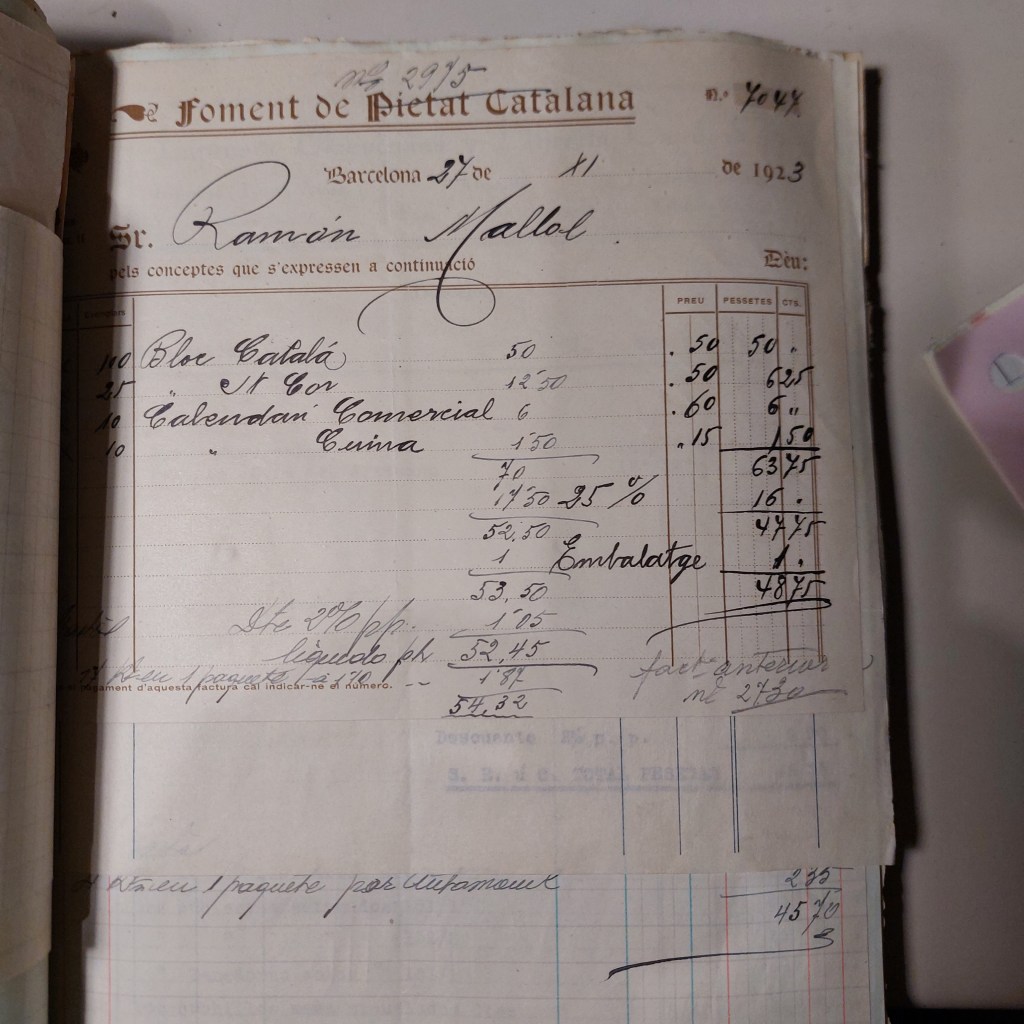 nº 2975
Foment de Pietat Catalana
N.º 7047
Barcelona 27 de XI de 1923
Sr. Ramón Mallol
pels conceptes que s'expressen a continuació Dèu:
PREU PESSETES CTS.
100 Bloc Catalá 50 . 50 50 .
25 " St Cor 12'50 . 50 6 25
10 Calendari Comercial 6 . 60 6 "
10 " Cuina 1'50 . 15 1 50
70 63 75
17'50 25 % 16 .
52,50 47 75
1 Embalatge 1 .
53,50 48 75
Dte 2% pp. 1'05
líquido 52,45 factª anterior
1 paquete 1'87 nº 2730
pagament d'aquesta factura cal indicar-ne el número.
54,32
Descuento 2% p. p.
S. E. ú O. TOTAL PESETAS
1 paquete por 2 35
45 70